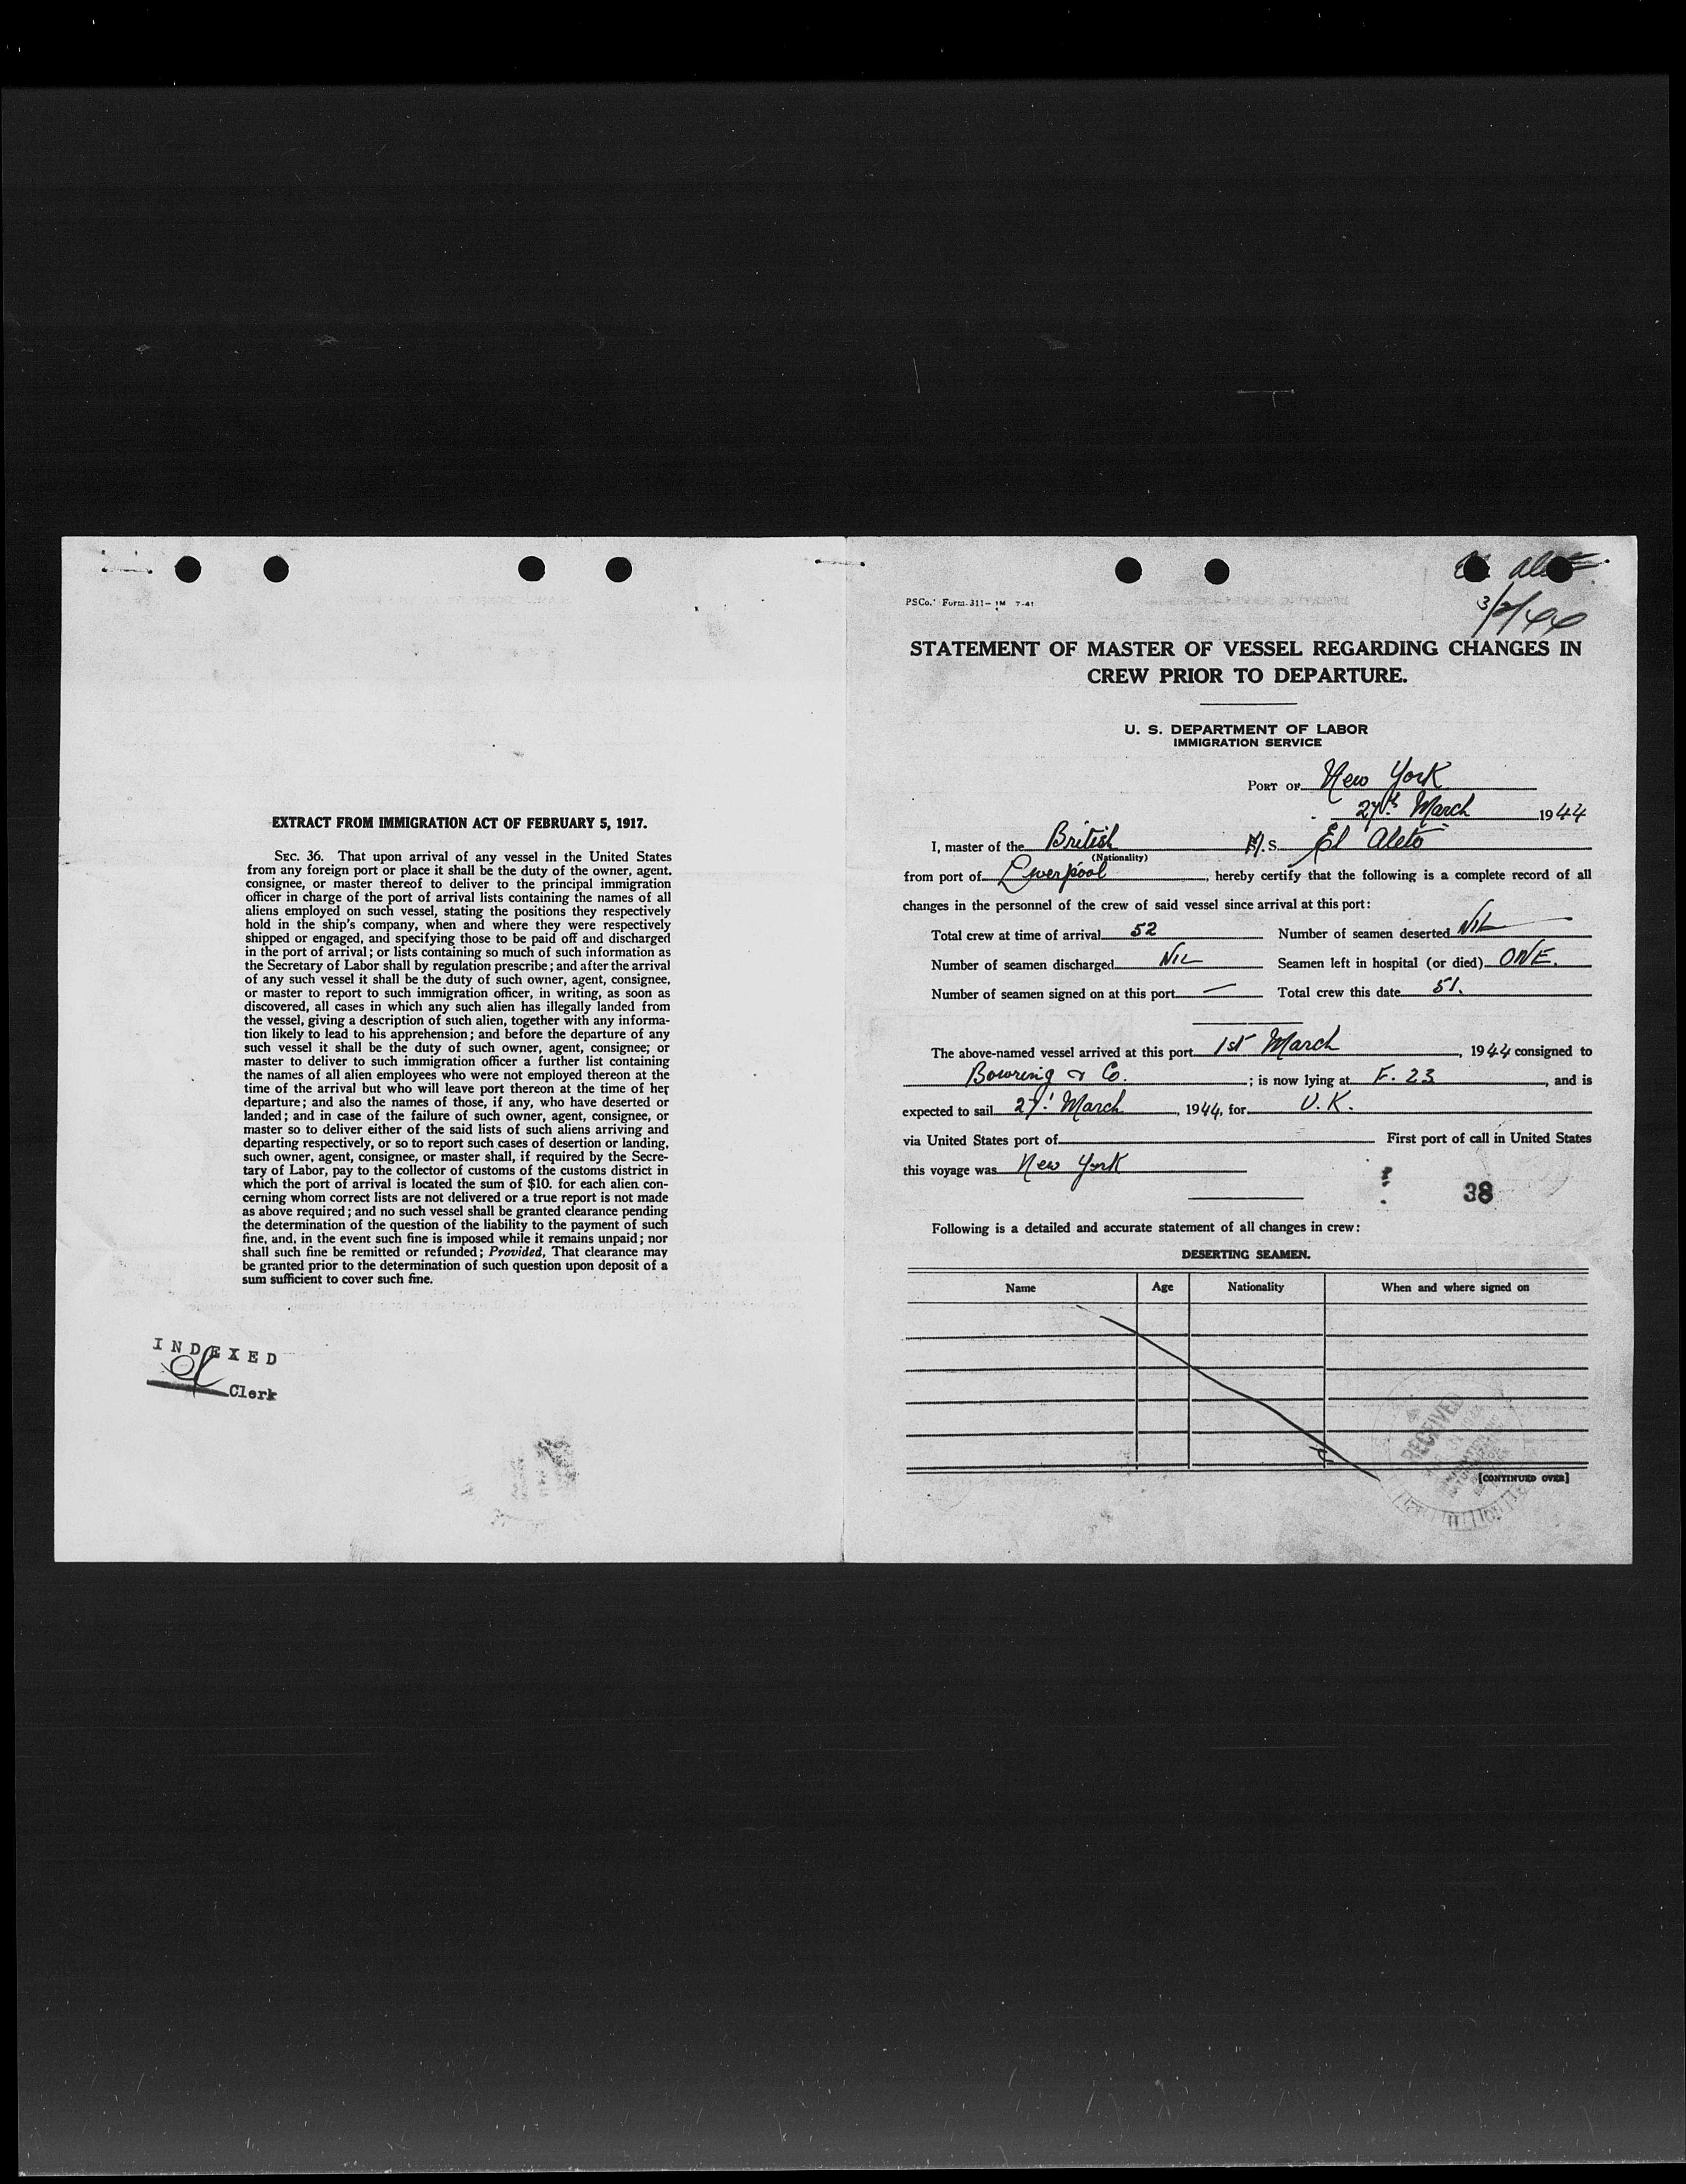 EXTRACT FROM IMMIGRATION ACT OF FEBRUARY 5, 1917.
SEC. 36. That upon arrival of any vessel in the United States
from any foreign port or place it shall be the duty of the owner, agent,
consignee, or master thereof to deliver to the principal immigration
officer in charge of the port of arrival lists containing the names of all
aliens employed on such vessel, stating the positions they respectively
hold in the ship's company, when and where they were respectively
shipped or engaged, and specifying those to be paid off and discharged
in the port of arrival; or lists containing so much of such information as
the Secretary of Labor shall by regulation prescribe; and after the arrival
of any such vessel it shall be the duty of such owner, agent, consignee,
or master to report to such immigration officer, in writing, as soon as
discovered, all cases in which any such alien has illegally landed from
the vessel, giving a description of such alien, together with any informa-
tion likely to lead to his apprehension; and before the departure of any
such vessel it shall be the duty of such owner, agent, consignee; or
master to deliver to such immigration officer a further list containing
the names of all alien employees who were not employed thereon at the
time of the arrival but who will leave port thereon at the time of her
departure; and also the names of those, if any, who have deserted or
landed; and in case of the failure of such owner, agent, consignee, or
master so to deliver either of the said lists of such aliens arriving and
departing respectively, or so to report such cases of desertion or landing,
such owner, agent, consignee, or master shall, if required by the Secre-
tary of Labor, pay to the collector of customs of the customs district in
which the port of arrival is located the sum of $10. for each alien con-
cerning whom correct lists are not delivered or a true report is not made
as above required; and no such vessel shall be granted clearance pending
the determination of the question of the liability to the payment of such
fine, and, in the event such fine is imposed while it remains unpaid; nor
shall such fine be remitted or refunded; Provided, That clearance may
be granted prior to the determination of such question upon deposit of a
sum sufficient to cover such fine.
INDEXED
Clerk
El Aleto
3/2/44
PSCo. Form. 311-1M 7-41
STATEMENT OF MASTER OF VESSEL REGARDING CHANGES IN
CREW PRIOR TO DEPARTURE.
U. S. DEPARTMENT OF LABOR
IMMIGRATION SERVICE
PORT OF New York
27th March 1944
I, master of the British M.S. El Aleto
(Nationality)
from port of Liverpool, hereby certify that the following is a complete record of all
changes in the personnel of the crew of said vessel since arrival at this port:
Total crew at time of arrival 52 Number of seamen deserted NIL
Number of seamen discharged NIL Seamen left in hospital (or died) ONE.
Number of seamen signed on at this port — Total crew this date 51.
The above-named vessel arrived at this port 1st March, 1944 consigned to
Bowring & Co.; is now lying at F. 23, and is
expected to sail 27. March, 1944, for U.K.
via United States port of First port of call in United States
this voyage was New York
38
Following is a detailed and accurate statement of all changes in crew:
DESERTING SEAMEN.
Name Age Nationality When and where signed on
RECEIVED
[CONTINUED OVER]